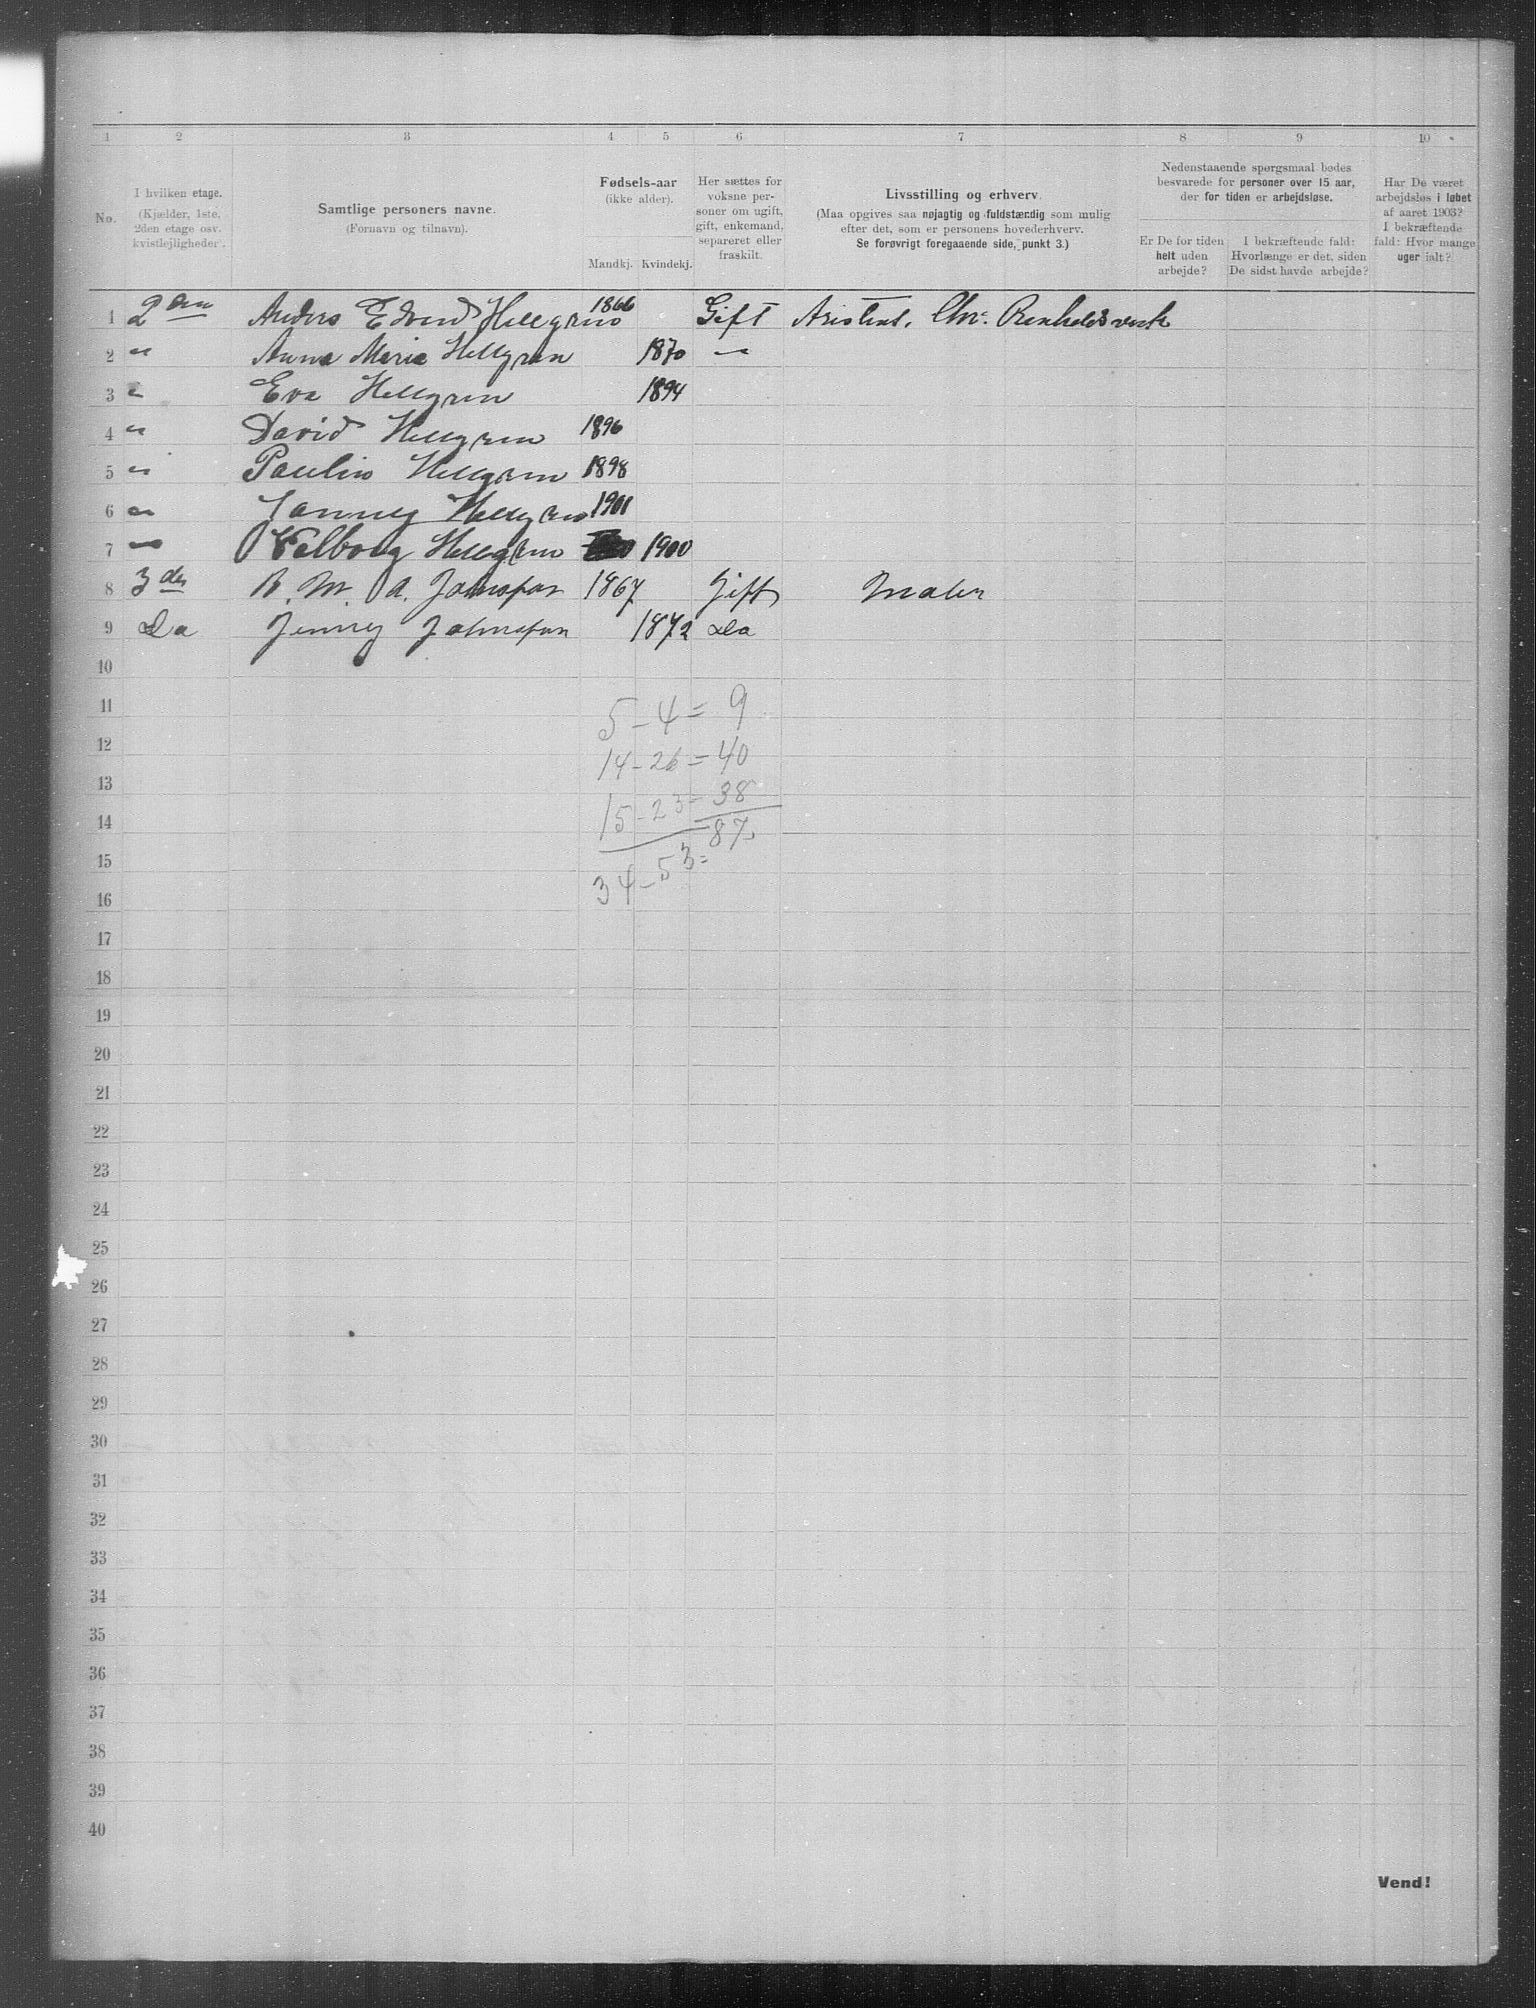 1 2 3 4 5 6 7 8 9 10
No.
I hvilken etage.
(Kjælder, 1ste,
2den etage osv.
kvistlejligheder).
Samtlige personers navne.
(Fornavn og tilnavn).
Fødsels-aar
(ikke alder).
Mandkj. Kvindekj.
Her sættes for
voksne per-
soner om ugift,
gift, enkemand,
separeret eller
fraskilt.
Livsstilling og erhverv.
(Maa opgives saa nøjagtig og fuldstændig som mulig
efter det, som er personens hovederhverv.
Se forøvrigt foregaaende side, punkt 3.)
Nedenstaaende spørgsmaal bedes
besvarede for personer over 15 aar,
der for tiden er arbejdsløse.
Er De for tiden
helt uden
arbejde?
I bekræftende fald:
Hvorlænge er det, siden
De sidst havde arbejde?
Har De været
arbejdsløs i løbet
af aaret 1903?
I bekræftende
fald: Hvor mange
uger ialt?
1 2den Anders Edvard Hellgren 1866 Gift Assistent, Chr. Renholdsverk
2 " Anna Maria Hellgren 1870 "
3 " Eva Hellgren 1894
4 " David Hellgren 1896
5 " Paulin Hellgren 1898
6 " Hellgren 1901
7 " Valborg Hellgren 1900
8 3die M. A. Johnsson 1867 Gift Maler
9 Do Jenny Johnsson 1872 Do
10
11 5 - 4 = 9
12 14 - 26 = 40
13 15 - 23 = 38
14 87
15 34 - 53 =
16
17
18
19
20
21
22
23
24
25
26
27
28
29
30
31
32
33
34
35
36
37
38
39
40
Vend!